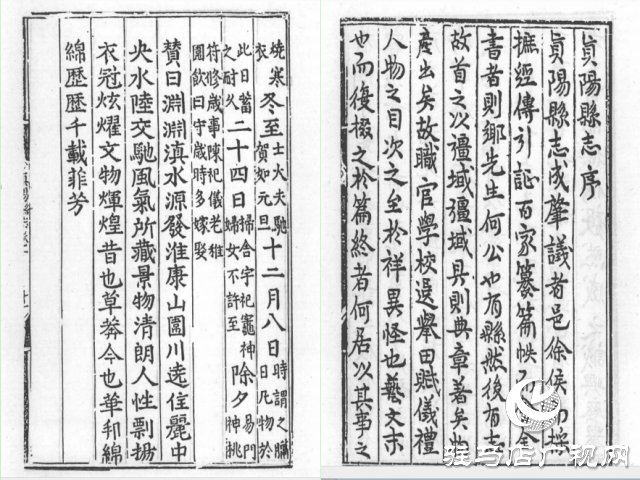 眞陽縣志序
眞陽縣志成肇議者邑徐侯 操
摭經傳引証百家纂篇帙 金
書者則鄉先生何公也有縣然後有志
故首之以疆域疆域具則典章著矣物
產出矣故職官學校選舉田賦儀禮
人物之目次之至於祥異怪也藝文末
也而復掇之於篇終者何居以其事之
燒寒衣冬至士大夫馳賀如元旦十二月八日時謂之臘日凡物於
此日蓄之耐久二十四日掃舍宇祀竈神婦女不許至除夕易門神桃
符修歲事陳祀儀老稚團飲曰守歲時多嫁娶
贊曰淵淵滇水源發淮康山圍川遶住麗中
央水陸交馳風氣所藏景物清朗人性剽揚
衣冠炫燿文物煇煌昔也草莽今也華邦綿
綿歷歷千載菲芳
驻马店广视网